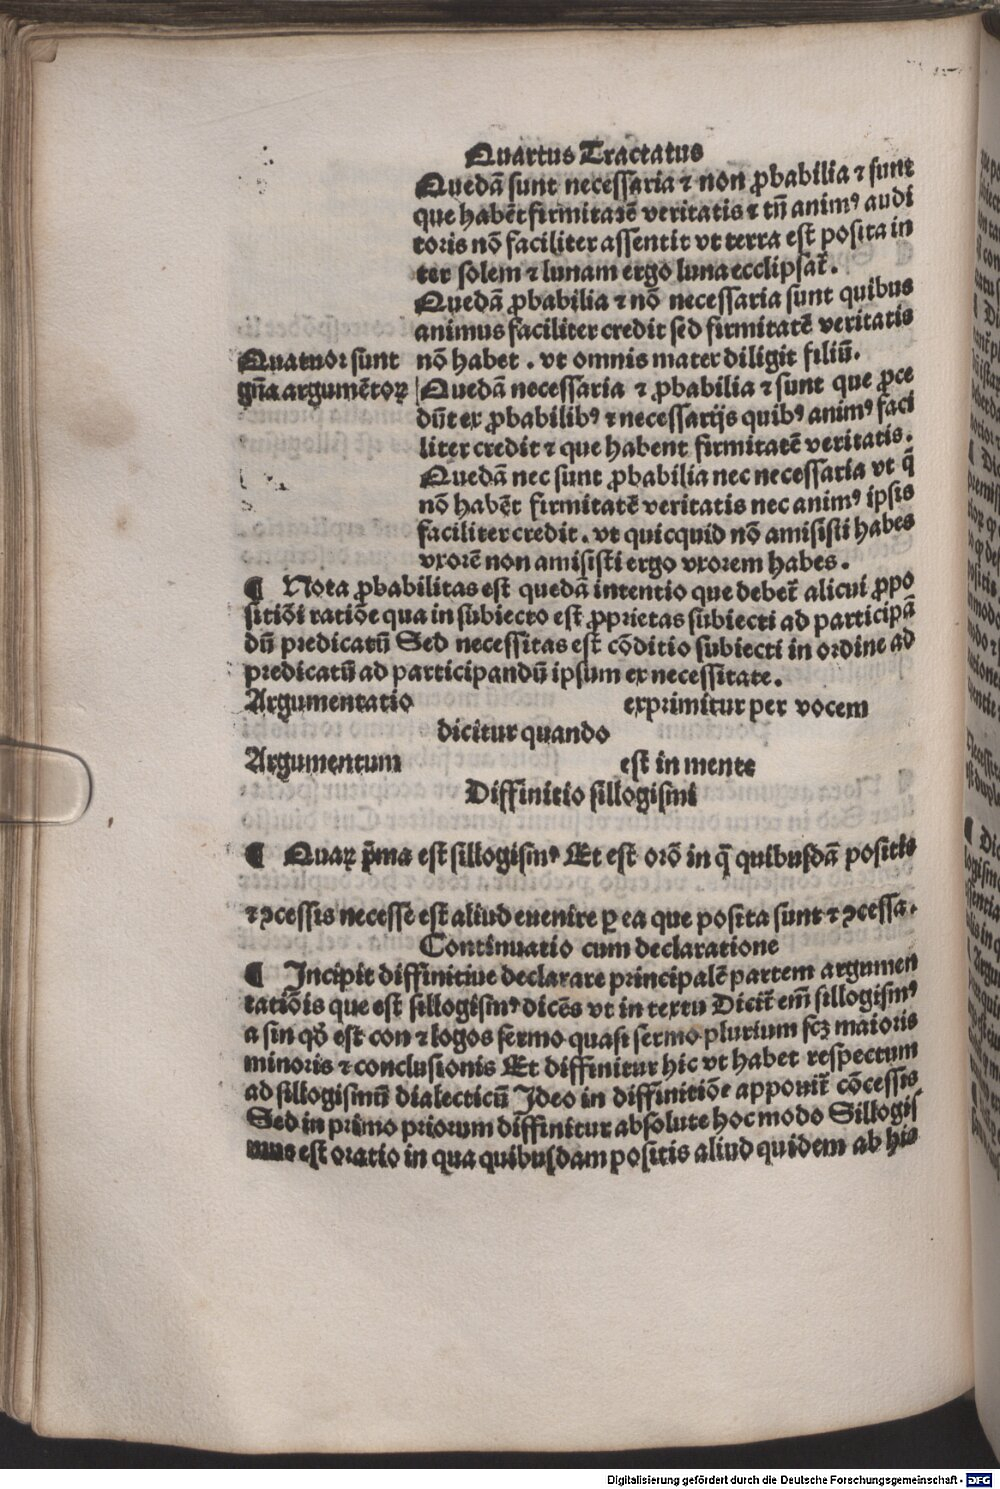 Quartus Tractatus
Quedā sunt necessaria ⁊ non ꝓbabilia ⁊ sunt
que habēt firmitatē veritatis ⁊ tn̄ animꝰ audi
toris nō faciliter assentit vt terra est posita in
ter solem ⁊ lunam ergo luna ecclipsat̄.
Quedā ꝓbabilia ⁊ nō necessaria sunt quibus
animus faciliter credit sed firmitatē veritatis
nō habet . vt omnis mater diligit filiū.
Quatuor sunt
gn̄a argumētoꝝ
Quedā necessaria ⁊ ꝓbabilia ⁊ sunt que ꝓce
dūt ex ꝓbabilibꝰ ⁊ necessarijs quibꝰ animꝰ faci
liter credit ⁊ que habent firmitatē veritatis.
Quedā nec sunt ꝓbabilia nec necessaria vt q̄
nō habēt firmitatē veritatis nec animꝰ ipsis
faciliter credit . vt quicquid nō amisisti habes
vxorē non amisisti ergo vxorem habes .
¶ Nota ꝓbabilitas est quedā intentio que debet̄ alicui ꝓpo
sitiōi ratiōe qua in subiecto est ꝓprietas subiecti ad participā
dū predicatū Sed necessitas est cōditio subiecti in ordine ad
predicatū ad participandū ipsum ex necessitate .
Argumentatio exprimitur per vocem
dicitur quando
Argumentum est in mente
Diffinitio sillogismi
¶ Quaꝝ p̄ma est sillogismꝰ Et est orō in q̄ quibusdā positis
⁊ ꝯcessis necesse est aliud euenire ꝑ ea que posita sunt ⁊ ꝯcessa .
Continuatio cum declaratione
¶ Incipit diffinitiue declarare principalē partem argumen
tatiōis que est sillogismꝰ dicēs vt in textu Dicit̄ em̄ sillogismꝰ
a sin qd̄ est con ⁊ logos sermo quasi sermo plurium scꝫ maioris
minoris ⁊ conclusionis Et diffinitur hic vt habet respectum
ad sillogismū dialecticū Ideo in diffinitiōe apponit̄ cōcessis
Sed in primo priorum diffinitur absolute hoc modo Sillogis
mus est oratio in qua quibusdam positis aliud quidem ab his
Digitalisierung gefördert durch die Deutsche Forschungsgemeinschaft - DFG